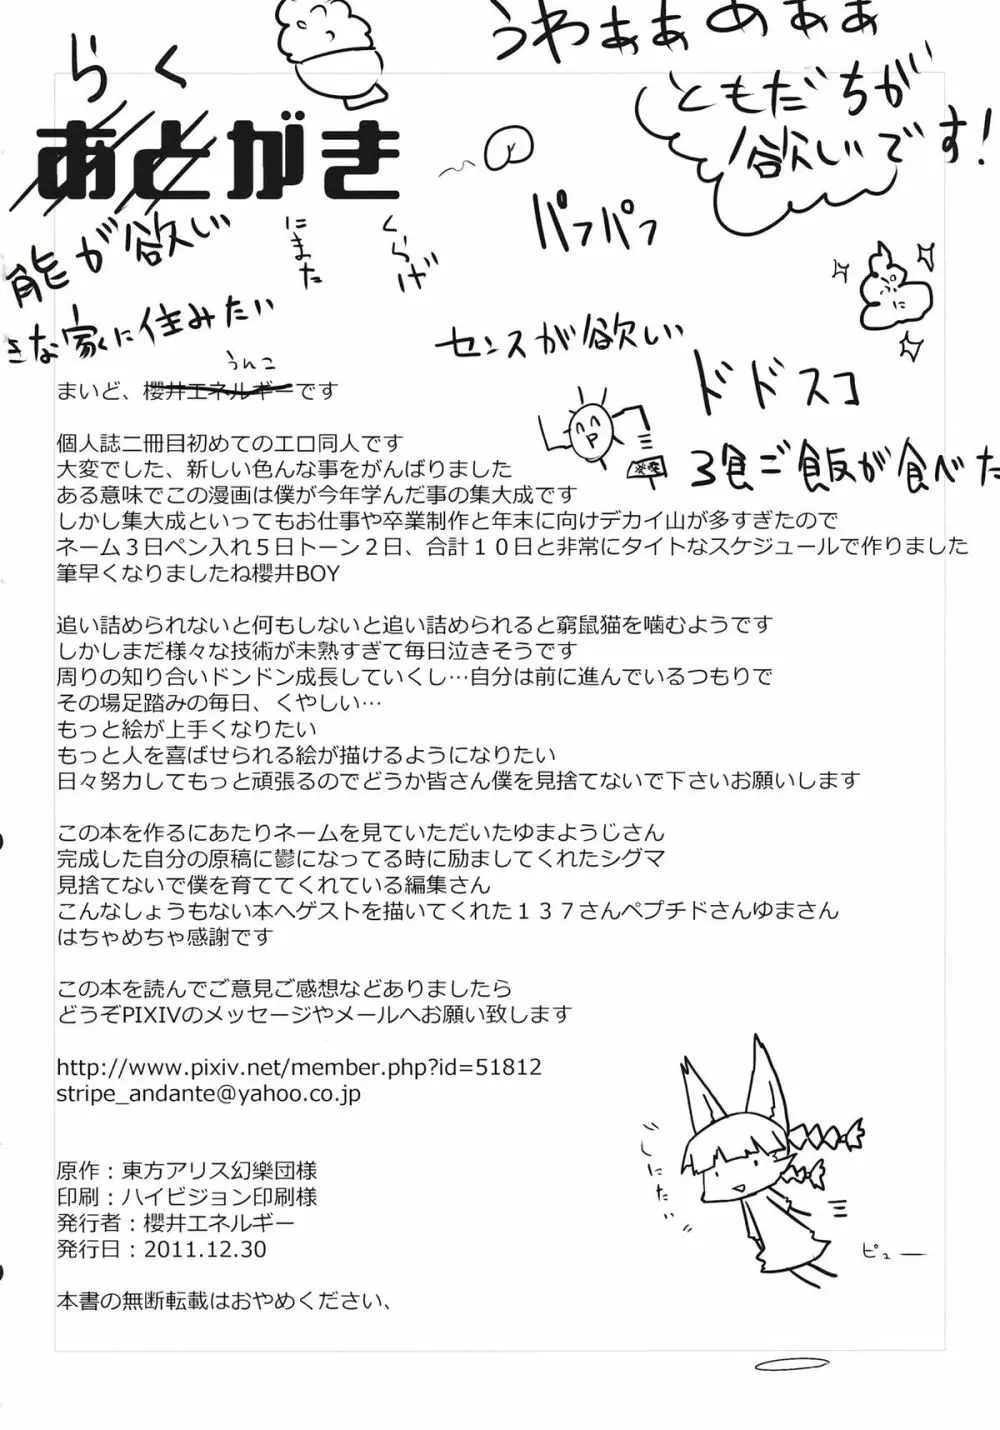 うわぁぁぁぁぁ
らく
ともだちが
欲しいです!
あとがき
パフパフ
能が欲しい
にまた
くらげ
きな家に住みたい
センスが欲しい
うんこ
ドドスコ
3食ご飯が食べた
まいど、櫻井エネルギーです
個人誌二冊目初めてのエロ同人です
大変でした、新しい色んな事をがんばりました
ある意味でこの漫画は僕が今年学んだ事の集大成です
しかし集大成といってもお仕事や卒業制作と年末に向けデカイ山が多すぎたので
ネーム３日ペン入れ５日トーン２日、合計１０日と非常にタイトなスケジュールで作りました
筆早くなりましたね櫻井BOY
追い詰められないと何もしないと追い詰められると窮鼠猫を噛むようです
しかしまだ様々な技術が未熟すぎて毎日泣きそうです
周りの知り合いドンドン成長していくし…自分は前に進んでいるつもりで
その場足踏みの毎日、くやしい…
もっと絵が上手くなりたい
もっと人を喜ばせられる絵が描けるようになりたい
日々努力してもっと頑張るのでどうか皆さん僕を見捨てないで下さいお願いします
この本を作るにあたりネームを見ていただいたゆまようじさん
完成した自分の原稿に鬱になってる時に励ましてくれたシグマ
見捨てないで僕を育ててくれている編集さん
こんなしょうもない本へゲストを描いてくれた１３７さんペプチドさんゆまさん
はちゃめちゃ感謝です
この本を読んでご意見ご感想などありましたら
どうぞPIXIVのメッセージやメールへお願い致します
http://www.pixiv.net/member.php?id=51812
stripe_andante@yahoo.co.jp
原作：東方アリス幻樂団様
印刷：ハイビジョン印刷様
発行者：櫻井エネルギー
発行日：2011.12.30
本書の無断転載はおやめください、
しにたい
ピュー